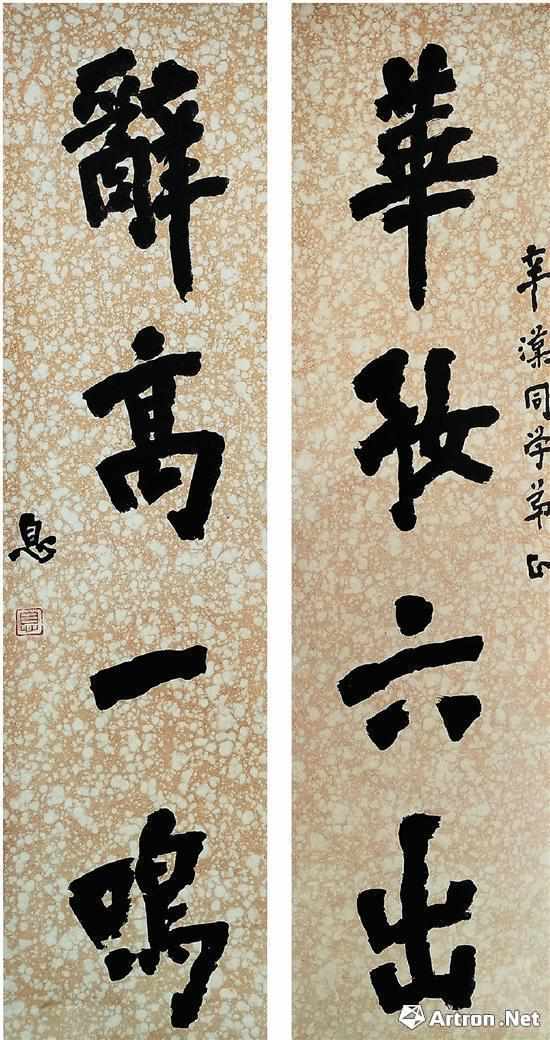 辛漢同学弟正
華妝六出
辭高一鳴
息
Artron.Net